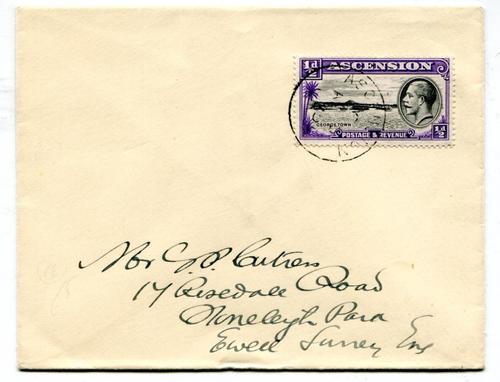 ½d ASCENSION
GEORGETOWN
POSTAGE & REVENUE ½d
Mr G. P. Cutress
17 Risedale Road
Stoneleigh Park
Ewell Surrey Eng